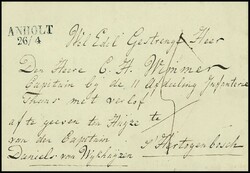 ANHOLT
26/4
Wel Edele Gestrenge Heer
Den Heere C. H. Wimmer
Capitein by de 11 Afdeeling Infanterie
Thans met verlof
af te geeven ten Huize
van den Capitein
Daniels van Wykhuyzen
s'Hertogenbosch